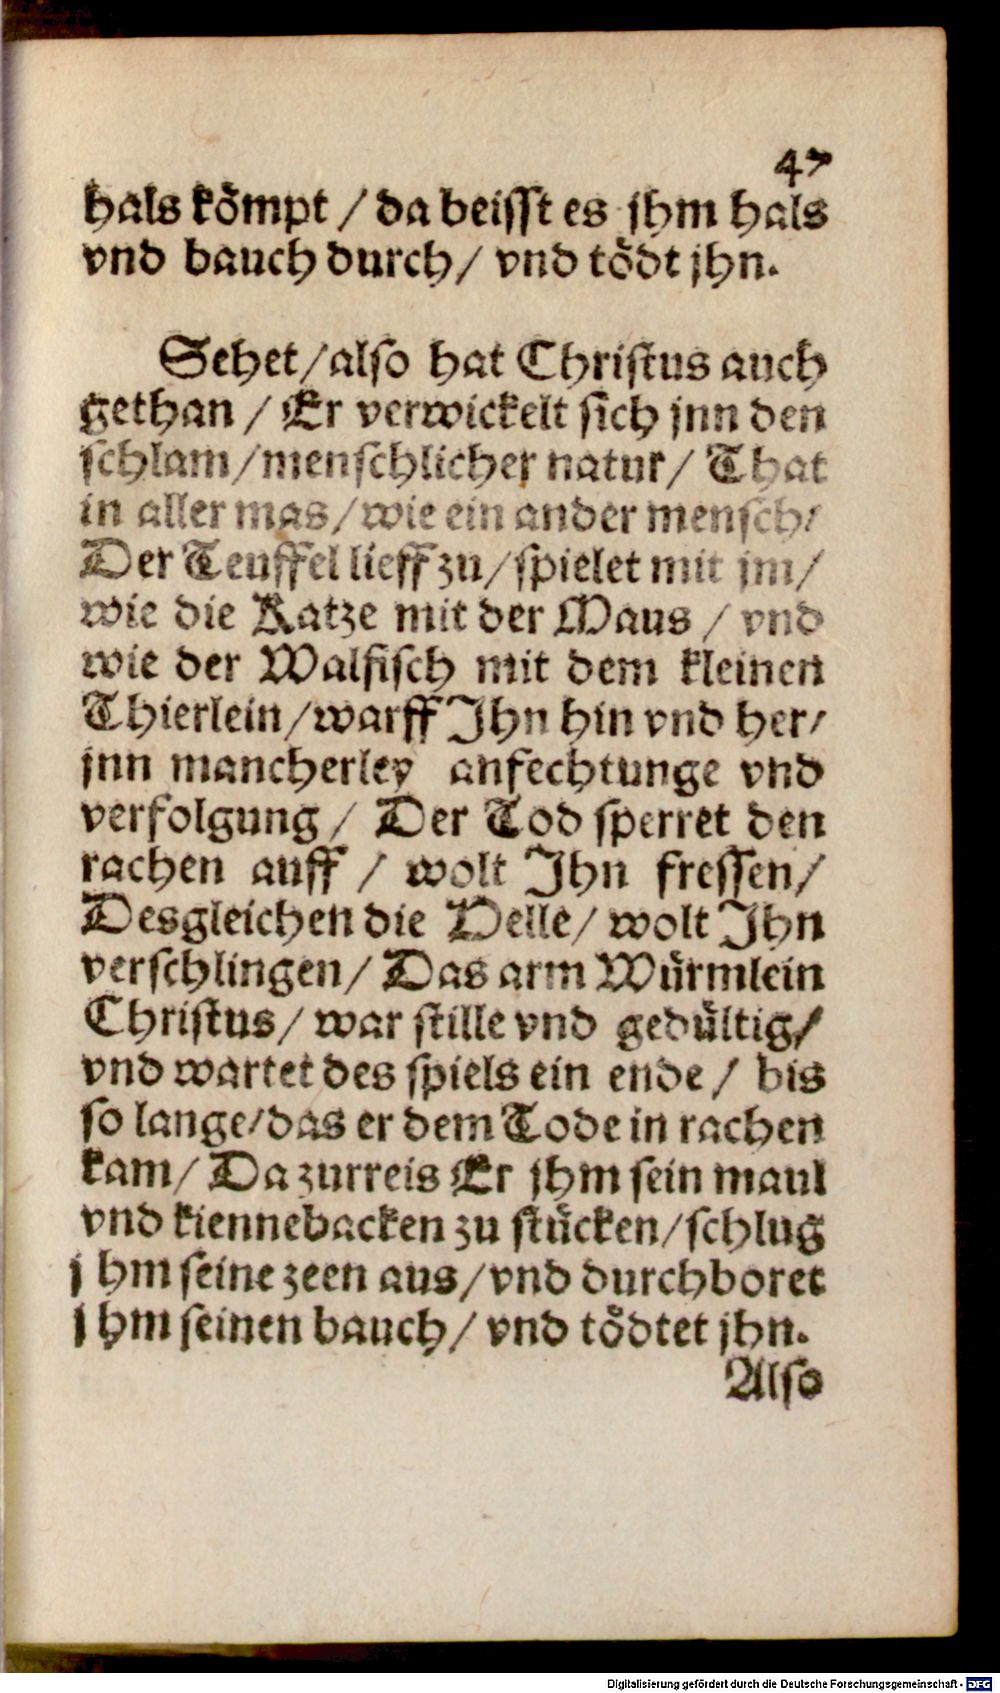 47
hals kömpt / da beisst es jhm hals
vnd bauch durch / vnd tödt jhn.
Sehet / also hat Christus auch
gethan / Er verwickelt sich jnn den
schlam / menschlicher natur / That
in aller mas / wie ein ander mensch /
Der Teuffel lieff zu / spielet mit jm /
wie die Katze mit der Maus / vnd
wie der Walfisch mit dem kleinen
Thierlein / warff Ihn hin vnd her /
jnn mancherley anfechtunge vnd
verfolgung / Der Tod sperret den
rachen auff / wolt Ihn fressen /
Desgleichen die Helle / wolt Ihn
verschlingen / Das arm Würmlein
Christus / war stille vnd gedültig /
vnd wartet des spiels ein ende / bis
so lange / das er dem Tode in rachen
kam / Da zurreis Er jhm sein maul
vnd kiennebacken zu stücken / schlug
jhm seine zeen aus / vnd durchboret
jhm seinen bauch / vnd tödtet jhn.
Also
Digitalisierung gefördert durch die Deutsche Forschungsgemeinschaft - DFG